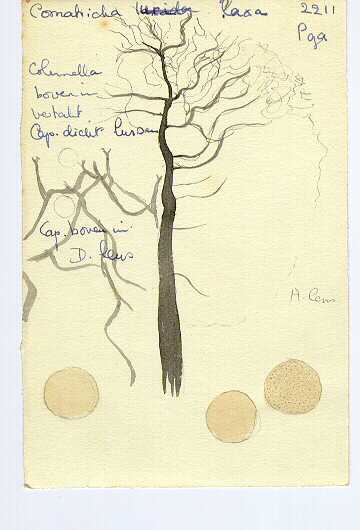 Comatricha lurida laxa 2211
Pga
Columella
boven in
vertakt.
Cap. dicht tussen
Cap. boven in
D. lens
A. lens